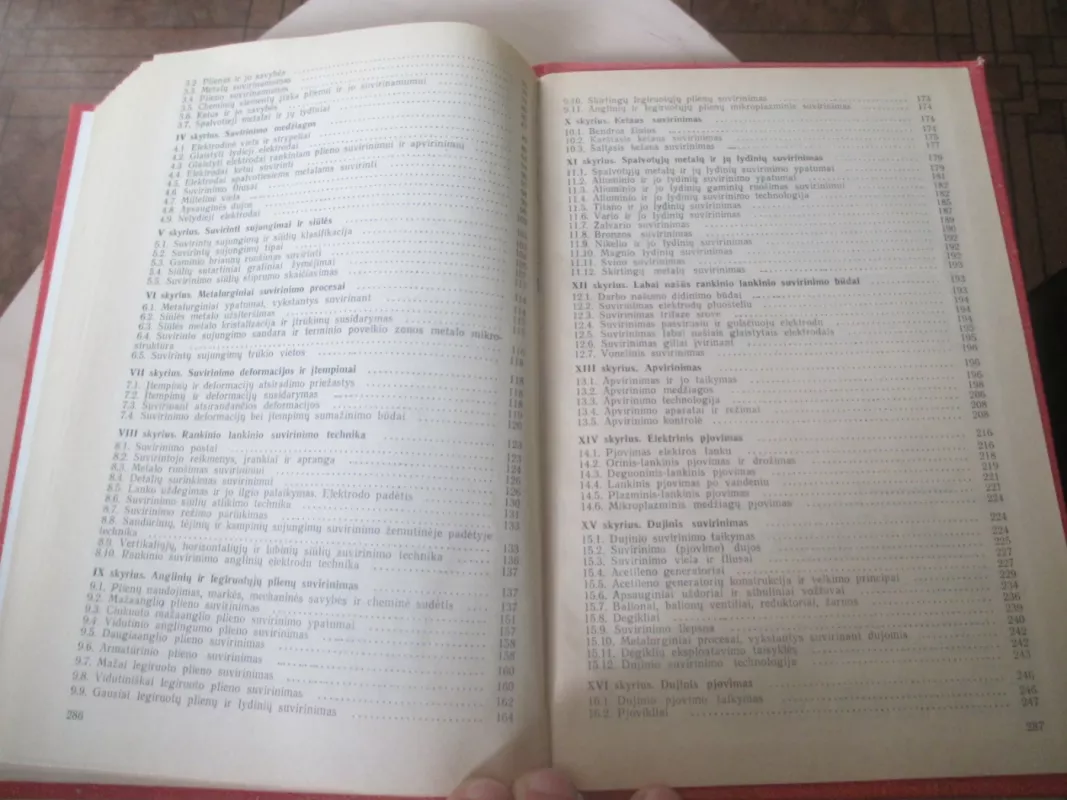 3.2. Plienas ir jo savybės
3.3. Metalų suvirinamumas
3.4. Plieno suvirinamumas
3.5. Cheminių elementų įtaka plienui ir jo suvirinamumui
3.6. Ketus ir jo savybės
3.7. Spalvotieji metalai ir jų lydiniai
IV skyrius. Suvirinimo medžiagos
4.1. Elektrodinė viela ir strypeliai
4.2. Glaistyti lydieji elektrodai
4.3. Glaistyti elektrodai rankiniam plieno suvirinimui ir apvirinimui
4.4. Elektrodai ketui suvirinti
4.5. Elektrodai spalvotiesiems metalams suvirinti
4.6. Suvirinimo fliusai
4.7. Miltelinė viela
4.8. Apsauginės dujos
4.9. Nelydieji elektrodai
V skyrius. Suvirinti sujungimai ir siūlės
5.1. Suvirintų sujungimų ir siūlių klasifikacija
5.2. Suvirintų sujungimų tipai
5.3. Gaminio briaunų ruošimas suvirinti
5.4. Siūlių sutartiniai grafiniai žymėjimai
5.5. Suvirinimo siūlių stiprumo skaičiavimas
VI skyrius. Metalurginiai suvirinimo procesai 114
6.1. Metalurginiai ypatumai, vykstantys suvirinant
6.2. Siūlės metalo užsiteršimas
6.3. Siūlės metalo kristalizacija ir įtrūkimų susidarymas
6.4. Suvirinto sujungimo sandara ir terminio poveikio zonos metalo mikro-
struktūra 116
6.5. Suvirintų sujungimų trūkio vietos 118
VII skyrius. Suvirinimo deformacijos ir įtempimai 118
7.1. Įtempimų ir deformacijų atsiradimo priežastys 118
7.2. Įtempimų ir deformacijų susidarymas 118
7.3. Suvirinant atsirandančios deformacijos 119
7.4. Suvirinimo deformacijų bei įtempimų sumažinimo būdai 120
VIII skyrius. Rankinio lankinio suvirinimo technika 123
8.1. Suvirinimo postai 123
8.2. Suvirintojo reikmenys, įrankiai ir apranga 124
8.3. Metalo ruošimas suvirinimui 126
8.4. Detalių surinkimas suvirinimui 126
8.5. Lanko uždegimas ir jo ilgio palaikymas. Elektrodo padėtis 130
8.6. Suvirinimo siūlių atlikimo technika 131
8.7. Suvirinimo režimo parinkimas 133
8.8. Sandūrinių, tėjinių ir kampinių sujungimų suvirinimo žemutinėje padėtyje
technika 133
8.9. Vertikaliųjų, horizontaliųjų ir lubinių siūlių suvirinimo technika 136
8.10. Rankinio suvirinimo anglinių elektrodu technika 137
IX skyrius. Anglinių ir legiruotųjų plienų suvirinimas 137
9.1. Plienų naudojimas, markės, mechaninės savybės ir cheminė sudėtis 137
9.2. Mažaanglio plieno suvirinimas 151
9.3. Ciokualo mažaanglio plieno suvirinimo ypatumai 157
9.4. Vidutinio anglingumo plieno suvirinimas 158
9.5. Daugiaanglio plieno suvirinimas 158
9.6. Armatūrinio plieno suvirinimas 160
9.7. Mažai legiruoto plieno suvirinimas 160
9.8. Vidutiniškai legiruoto plieno suvirinimas 162
9.9. Gausiai legiruotų plienų ir lydinių suvirinimas 164
286
9.10. Skirtingų legiruotųjų plienų suvirinimas 173
9.11. Anglinių ir legiruotųjų plienų mikroplazminis suvirinimas 174
X skyrius. Ketaus suvirinimas 174
10.1. Bendros žinios 174
10.2. Karštasis ketaus suvirinimas 175
10.3. Šaltasis ketaus suvirinimas 177
XI skyrius. Spalvotųjų metalų ir jų lydinių suvirinimas 179
11.1. Spalvotųjų metalų ir jų lydinių suvirinimo ypatumai 179
11.2. Aliuminio ir jo lydinių suvirinimo ypatumai
11.3. Aliuminio ir jo lydinių gaminių ruošimas suvirinimui 182
11.4. Aliuminio ir jo lydinių suvirinimo technologija 182
11.5. Titano ir jo lydinių suvirinimas 185
11.6. Vario ir jo lydinių suvirinimas 187
11.7. Žalvario suvirinimas 189
11.8. Bronzos suvirinimas 190
11.9. Nikelio ir jo lydinių suvirinimas 192
11.10. Magnio lydinių suvirinimas 192
11.11. Švino suvirinimas 192
11.12. Skirtingų metalų suvirinimas 193
XII skyrius. Labai našūs rankinio lankinio suvirinimo būdai 193
12.1. Darbo našumo didinimo būdai 193
12.2. Suvirinimas elektrodų pluošteliu 194
12.3. Suvirinimas trifaze srove 194
12.4. Suvirinimas pasvirusiu ir gulsčiuoju elektrodu 194
12.5. Suvirinimas labai našiais glaistytais elektrodais 195
12.6. Suvirinimas giliai įvirinant 195
12.7. Vonelinis suvirinimas 196
XIII skyrius. Apvirinimas 196
13.1. Apvirinimas ir jo taikymas 196
13.2. Apvirinimo medžiagos 198
13.3. Apvirinimo technologija 206
13.4. Apvirinimo aparatai ir režimai 208
13.5. Apvirinimo kontrolė 208
XIV skyrius. Elektrinis pjovimas 216
14.1. Pjovimas elektros lanku 216
14.2. Orinis-lankinis pjovimas ir drožimas 218
14.3. Deguoninis-lankinis pjovimas 219
14.4. Lankinis pjovimas po vandeniu 221
14.5. Plazminis-lankinis pjovimas 221
14.6. Mikroplazminis medžiagų pjovimas 224
XV skyrius. Dujinis suvirinimas 224
15.1. Dujinio suvirinimo taikymas 224
15.2. Suvirinimo (pjovimo) dujos 225
15.3. Suvirinimo viela ir fliusai 227
15.4. Acetileno generatoriai 227
15.5. Acetileno generatorių konstrukcija ir veikimo principai 229
15.6. Apsauginiai uždoriai ir atbuliniai vožtuvai 234
15.7. Balionai, balionų ventiliai, reduktoriai, žarnos 236
15.8. Degikliai 239
15.9. Suvirinimo liepsna 240
15.10. Metalurginiai procesai, vykstantys suvirinant dujomis 242
15.11. Degiklių eksploatavimo taisyklės 242
15.12. Dujinio suvirinimo technologija 243
XVI skyrius. Dujinis pjovimas 246
16.1. Dujinio pjovimo taikymas 246
16.2. Pjovikliai 247
287